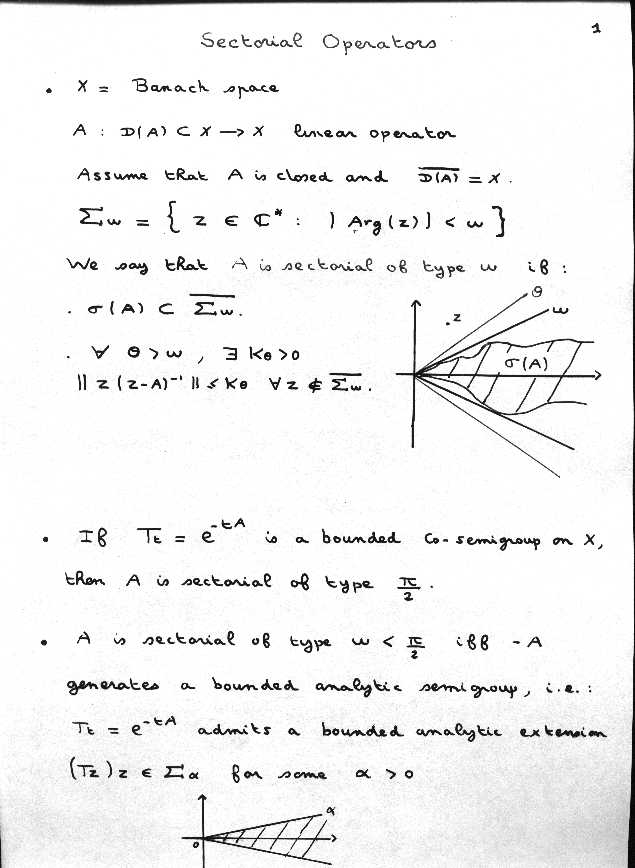 1
Sectorial Operators
• X = Banach space
A : D(A) ⊂ X → X linear operator
Assume that A is closed and \overline{D(A)} = X.
Σω = { z ∈ ℂ* : |Arg(z)| < ω }
We say that A is sectorial of type ω iff :
. σ(A) ⊂ \overline{Σω}.
. ∀ θ > ω , ∃ Kθ > 0
‖ z (z-A)⁻¹ ‖ ≤ Kθ ∀ z ∉ \overline{Σω}.
θ
ω
z
σ(A)
• If Tt = e^{-tA} is a bounded C0-semigroup on X,
then A is sectorial of type π/2.
• A is sectorial of type ω < π/2 iff -A
generates a bounded analytic semigroup, i.e.:
Tt = e^{-tA} admits a bounded analytic extension
(Tz) z ∈ Σα for some α > 0
α
0